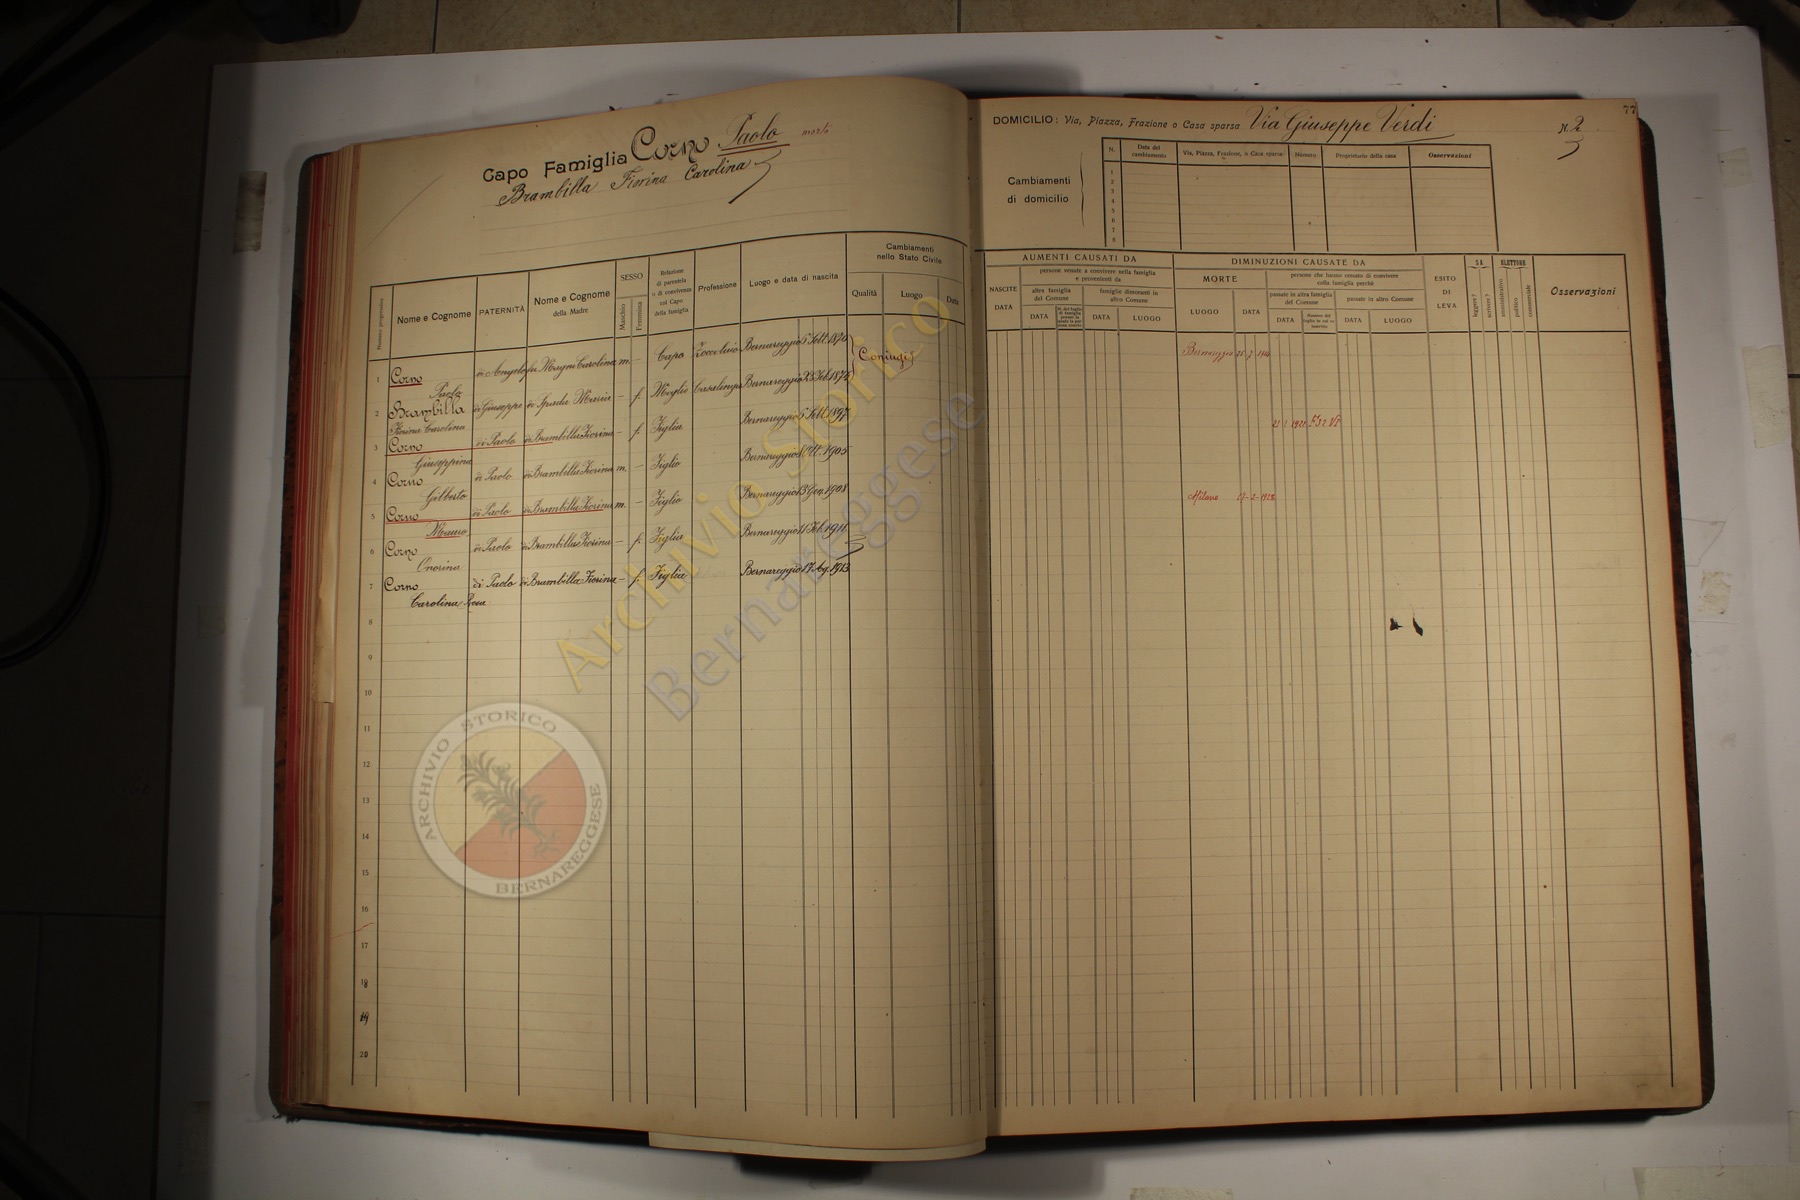 Capo Famiglia Corno Paolo morto
Brambilla Fiorina Carolina
Numero progressivo
Nome e Cognome
PATERNITÀ
Nome e Cognome
della Madre
SESSO
Maschio
Femmina
Relazione
di parentela
o di convivenza
col Capo
della famiglia
Professione
Luogo e data di nascita
Cambiamenti
nello Stato Civile
Qualità
Luogo
Data
1 Corno Paolo di Angelo fu Magni Carolina m. — Capo Zoccolaio Bernareggio 5 Sett. 1870 Coniugi
2 Brambilla Fiorina Carolina di Giuseppe di Spada Maria — f. Moglie Casalinga Bernareggio 23 Feb. 1875
3 Corno Giuseppina di Paolo di Brambilla Fiorina — f. Figlia Bernareggio 5 Sett. 1897
4 Corno Gilberto di Paolo di Brambilla Fiorina m. — Figlio Bernareggio 8 Ott. 1905
5 Corno Mauro di Paolo di Brambilla Fiorina m. — Figlio Bernareggio 13 Gen. 1908
6 Corno Onorina di Paolo di Brambilla Fiorina — f. Figlia Bernareggio 11 Feb. 1911
7 Corno Carolina Rosa di Paolo di Brambilla Fiorina — f. Figlia Bernareggio 17 Ag. 1913
8
9
10
11
12
13
14
15
16
17
18
19
20
77
DOMICILIO: Via, Piazza, Frazione o Casa sparsa Via Giuseppe Verdi N. 2
Cambiamenti
di domicilio
N.
Data del
cambiamento
Via, Piazza, Frazione, o Casa sparsa
Numero
Proprietario della casa
Osservazioni
1
2
3
4
5
6
7
8
AUMENTI CAUSATI DA
NASCITE
DATA
persone venute a convivere nella famiglia
e provenienti da
altra famiglia
del Comune
DATA
famiglie dimoranti in
altro Comune
DATA
LUOGO
DIMINUZIONI CAUSATE DA
MORTE
LUOGO
DATA
persone che hanno cessato di convivere
colla famiglia perchè
passate in altra famiglia
del Comune
DATA
passate in altro Comune
DATA
LUOGO
ESITO
DI
LEVA
SA
leggere?
scrivere?
ELETTORE
amministrativo
politico
commerciale
Osservazioni
Bernareggio
Milano 17-2-1928
Archivio Storico
Bernareggese
ARCHIVIO STORICO
BERNAREGGESE